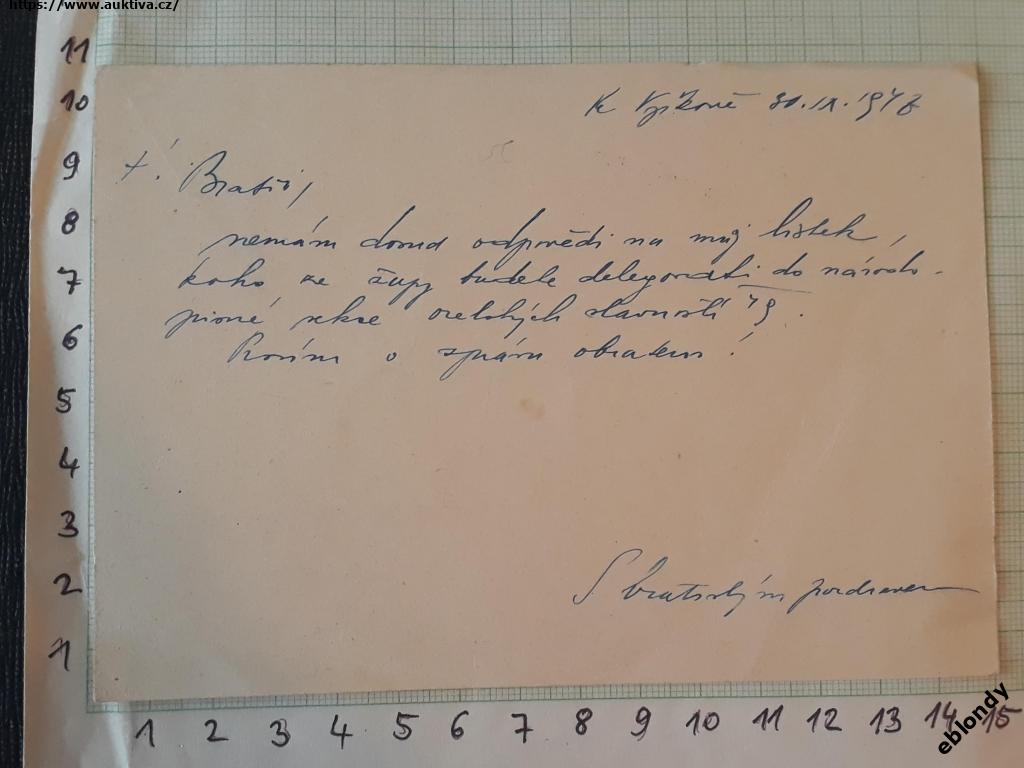 https://www.auktiva.cz/
11
10
9
8
7
6
5
4
3
2
1
30.IX.1946
Bratři,
nemám dosud odpovědi na můj lístek,
koho ze župy budete delegovati do národo-
pisné sekce orelských slavností
Prosím o zprávu obratem!
S bratrským pozdravem
1 2 3 4 5 6 7 8 9 10 11 12 13 14 15
eblondy